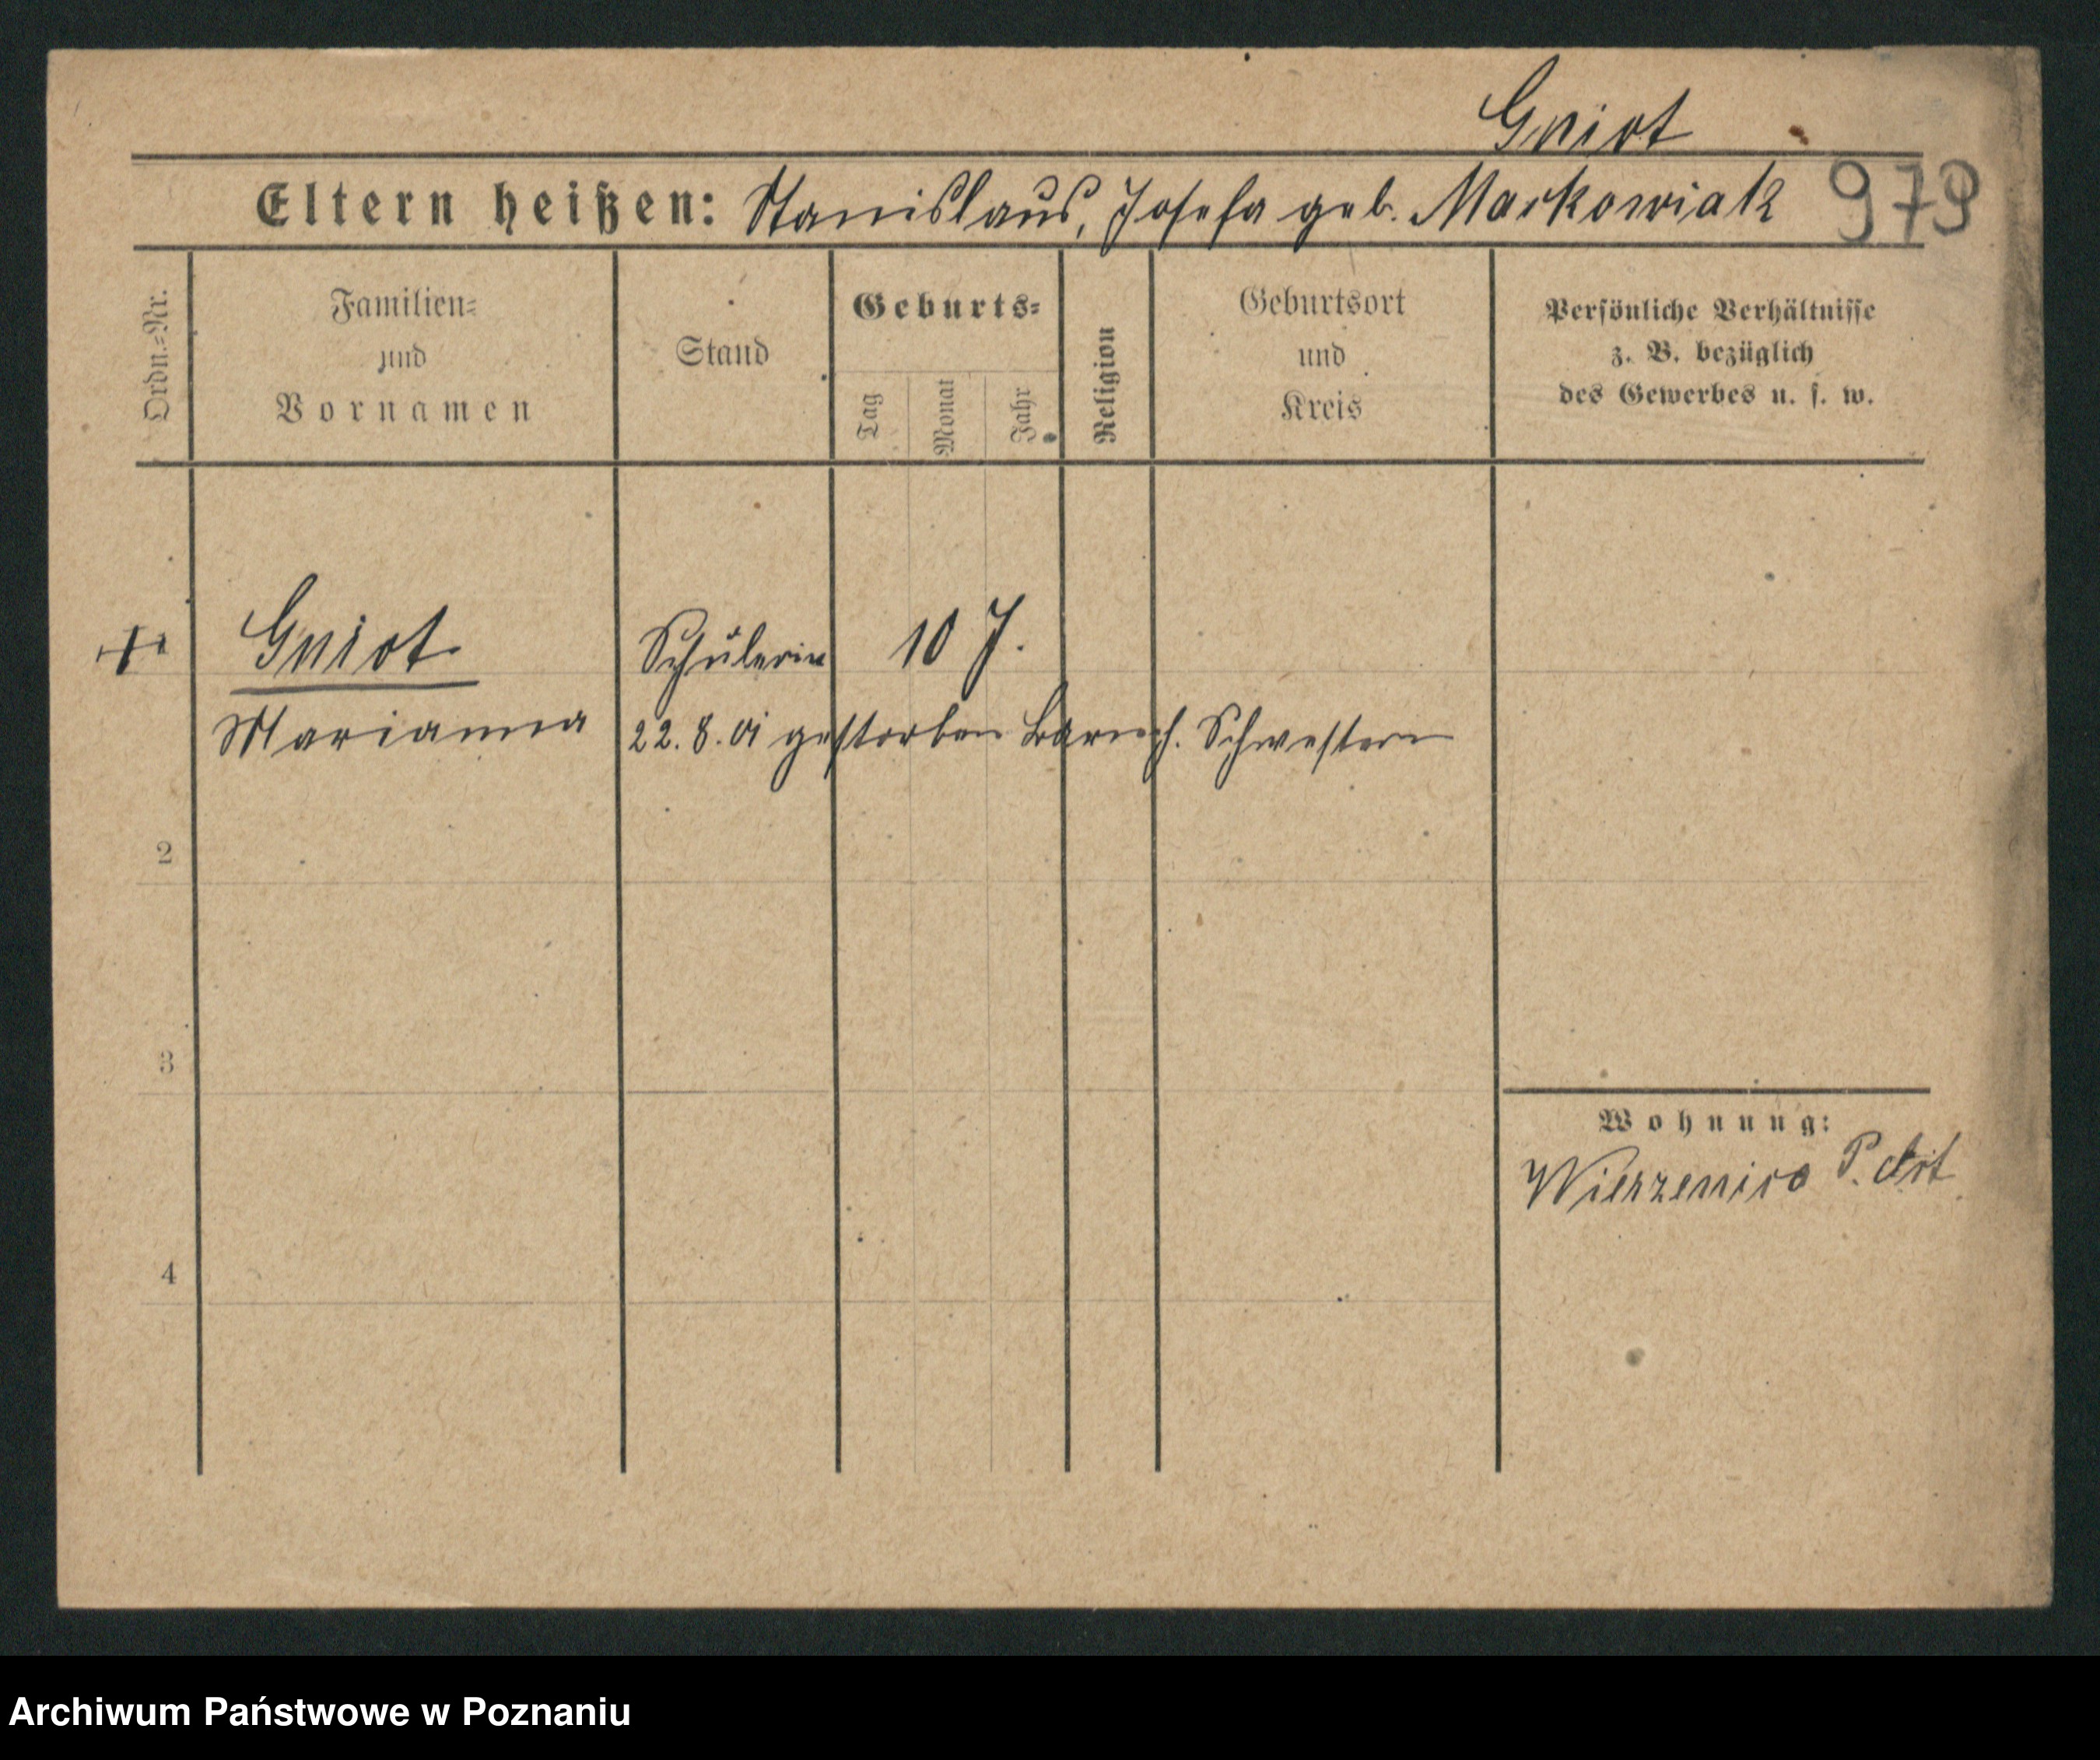 Gniot
Eltern heißen: Stanislaus, Josefa geb. Markowiak 979
Ordn.=Nr.
Familien=
und
Vornamen
Stand
Geburts=
Tag
Monat
Jahr
Religion
Geburtsort
und
Kreis
Persönliche Verhältnisse
z. B. bezüglich
des Gewerbes u. s. w.
Gniot Schülerin 10 J.
Marianna 22.8.01 gestorben Barmh. Schwestern
2
3
Wohnung:
P. Ost
4
Archiwum Państwowe w Poznaniu